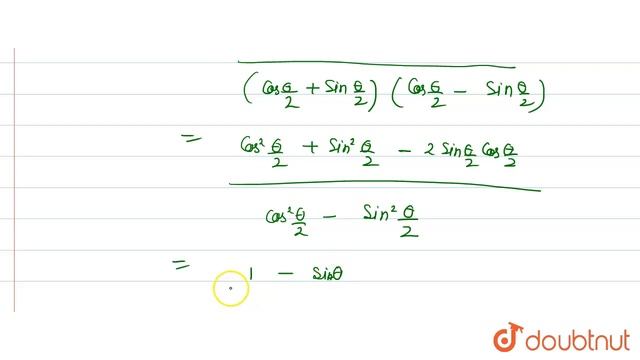 (Cos θ/2 + Sin θ/2) (Cos θ/2 − Sin θ/2)
= Cos² θ/2 + Sin² θ/2 − 2 Sin θ/2 Cos θ/2
Cos² θ/2 − Sin² θ/2
= 1 − Sinθ
doubtnut